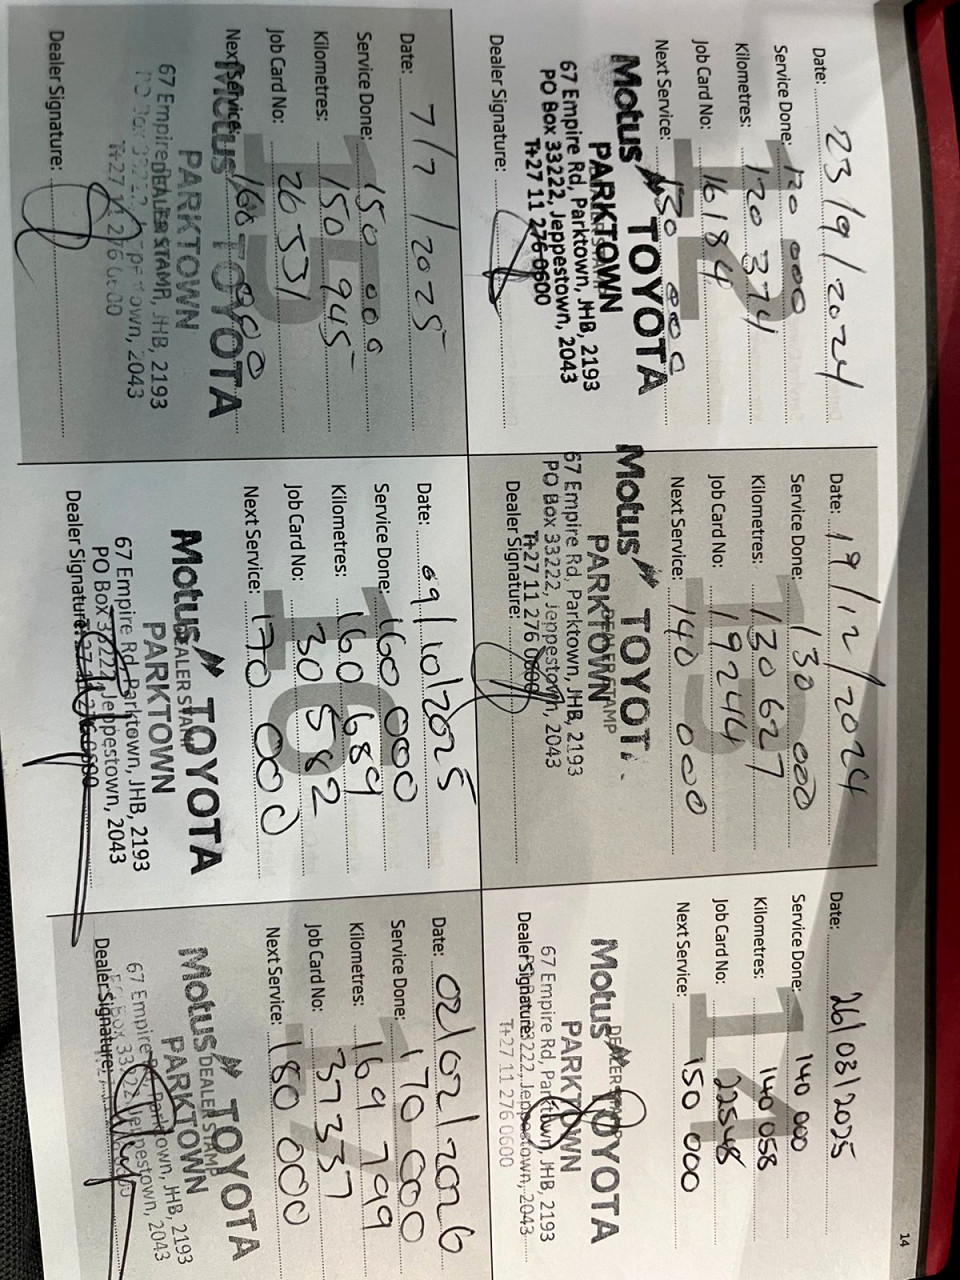 14
Date: 23/9/2024
Service Done: 120 000
Kilometres: 120 374
Job Card No: 16184
Next Service: 130 000
Motus TOYOTA
PARKTOWN
67 Empire Rd, Parktown, JHB, 2193
PO Box 33222, Jeppestown, 2043
T+27 11 276 0600
Dealer Signature:
12
Date: 19/12/2024
Service Done: 130 000
Kilometres: 130 627
Job Card No: 19244
Next Service: 140 000
Motus TOYOT
DEALER STAMP
PARKTOWN
67 Empire Rd, Parktown, JHB, 2193
PO Box 33222, Jeppestown, 2043
T+27 11 276 0600
Dealer Signature:
13
Date: 26/03/2025
Service Done: 140 000
Kilometres: 140 058
Job Card No: 22548
Next Service: 150 000
DEALER STAMP
Motus TOYOTA
PARKTOWN
67 Empire Rd, Parktown, JHB, 2193
Dealer Signature: 33222, Jeppestown, 2043
T+27 11 276 0600
14
Date: 7/7/2025
Service Done: 150 000
Kilometres: 150 945
Job Card No: 26531
Next Service: 160 000
Motus TOYOTA
PARKTOWN
DEALER STAMP
67 Empire Rd, Parktown, JHB, 2193
PO Box 33222, Jeppestown, 2043
T+27 11 276 0600
Dealer Signature:
15
Date: 09/10/2025
Service Done: 160 000
Kilometres: 160 689
Job Card No: 30582
Next Service: 170 000
Motus TOYOTA
DEALER STAMP
PARKTOWN
67 Empire Rd, Parktown, JHB, 2193
PO Box 33222, Jeppestown, 2043
Dealer Signature: T+27 11 276 0600
16
Date: 02/02/2026
Service Done: 170 000
Kilometres: 169 799
Job Card No: 37337
Next Service: 180 000
Motus TOYOTA
DEALER STAMP
PARKTOWN
67 Empire Rd, Parktown, JHB, 2193
PO Box 33222, Jeppestown, 2043
Dealer Signature:
17